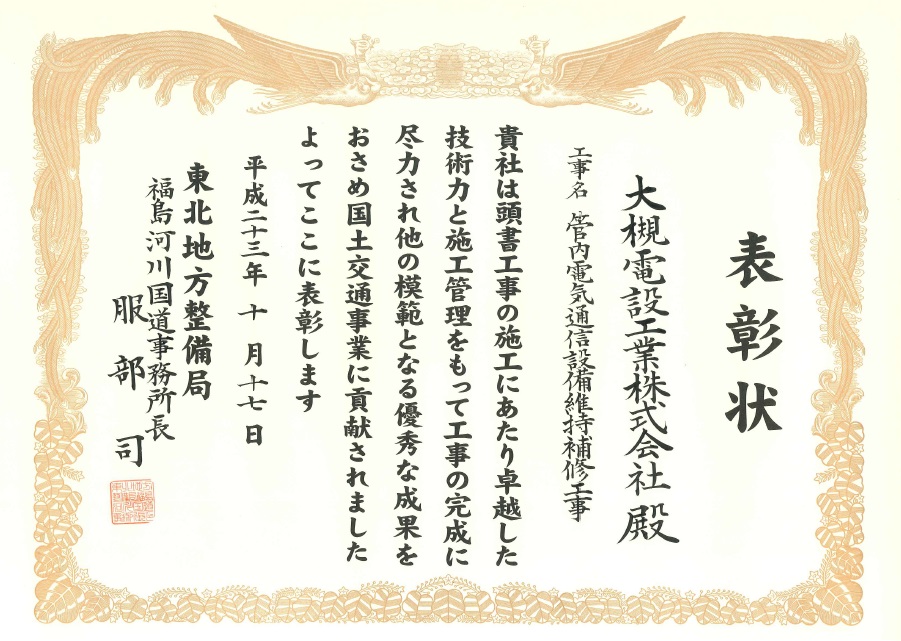 表彰状
大槻電設工業株式会社 殿
工事名 管内電気通信設備維持補修工事
貴社は頭書工事の施工にあたり卓越した
技術力と施工管理をもって工事の完成に
尽力され他の模範となる優秀な成果を
おさめ国土交通事業に貢献されました
よってここに表彰します
平成二十三年 十 月 十七 日
東北地方整備局
福島河川国道事務所長
服部 司